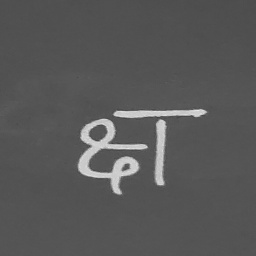 क्ष